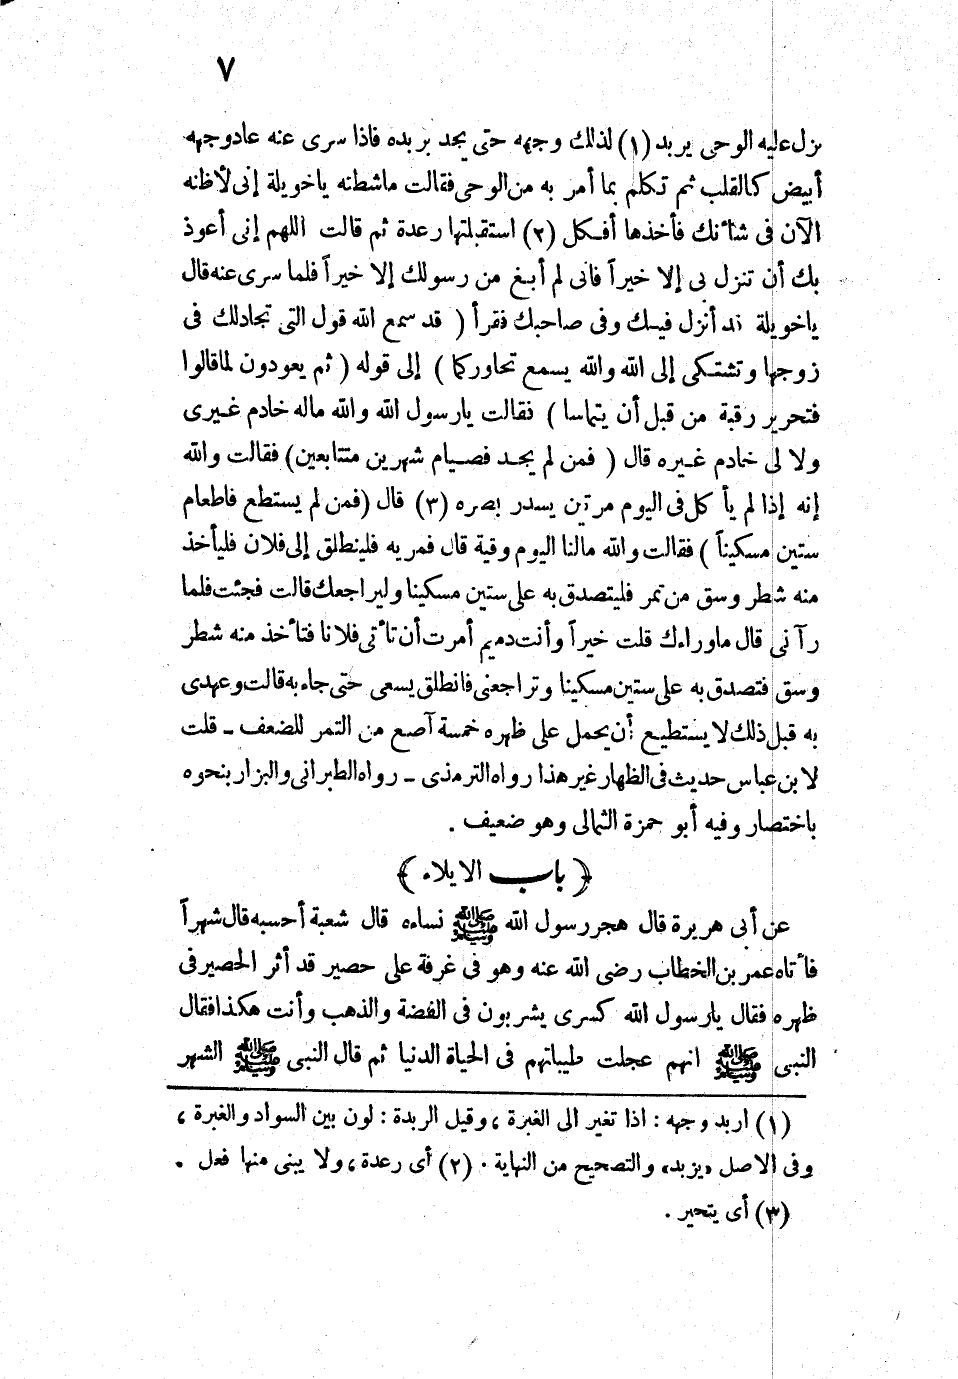 ٧
نزل عليه الوحى يربد (١) لذلك وجهه حتى يجد بربده فاذا سرى عنه عاد وجهه
أبيض كالقلب ثم تكلم بما أمر به من الوحى فقالت ماشطته ياخويلة إنى لأظنه
الآن فى شأنك فأخذها أفكل (٢) استقبلتها رعدة ثم قالت اللهم إنى أعوذ
بك أن تنزل بى إلا خيراً فانى لم أبغ من رسولك إلا خيراً فلما سرى عنه قال
ياخويلة قد أنزل فيك وفى صاحبك فقرأ ( قد سمع الله قول التى تجادلك فى
زوجها وتشتكى إلى الله والله يسمع تحاوركما ) إلى قوله ( ثم يعودون لما قالوا
فتحرير رقبة من قبل أن يتماسا ) فقالت يارسول الله والله ماله خادم غيرى
ولا لى خادم غيره قال ( فمن لم يجد فصيام شهرين متتابعين ) فقالت والله
إنه إذا لم يأكل فى اليوم مرتين يسدر بصره (٣) قال (فمن لم يستطع فاطعام
ستين مسكيناً ) فقالت والله مالنا اليوم وقية قال فمريه فلينطلق إلى فلان فليأخذ
منه شطر وسق من تمر فليتصدق به على ستين مسكينا وليراجعك قالت فجئت فلما
رآنى قال ماوراءك قلت خيراً وأنت دميم أمرت أن تأتى فلانا فتأخذ منه شطر
وسق فتصدق به على ستين مسكينا وتراجعنى فانطلق يسعى حتى جاء به قالت وعهدى
به قبل ذلك لا يستطيع أن يحمل على ظهره خمسة آصع من التمر للضعف ـ قلت
لابن عباس حديث فى الظهار غير هذا رواه الترمذى ـ رواه الطبرانى والبزار بنحوه
باختصار وفيه أبو حمزة الثمالى وهو ضعيف .
﴿ باب الايلاء ﴾
عن أبى هريرة قال هجر رسول الله ﷺ نساءه قال شعبة أحسبه قال شهراً
فأتاه عمر بن الخطاب رضى الله عنه وهو فى غرفة على حصير قد أثر الحصير فى
ظهره فقال يارسول الله كسرى يشربون فى الفضة والذهب وأنت هكذا فقال
النبى ﷺ انهم عجلت طيباتهم فى الحياة الدنيا ثم قال النبى ﷺ الشهر
(١) اربد وجهه : اذا تغير الى الغبرة ، وقيل الربدة : لون بين السواد والغبرة ،
وفى الاصل «يزبد» والتصحيح من النهاية . (٢) أى رعدة ، ولا يبنى منها فعل .
(٣) أى يتحير .